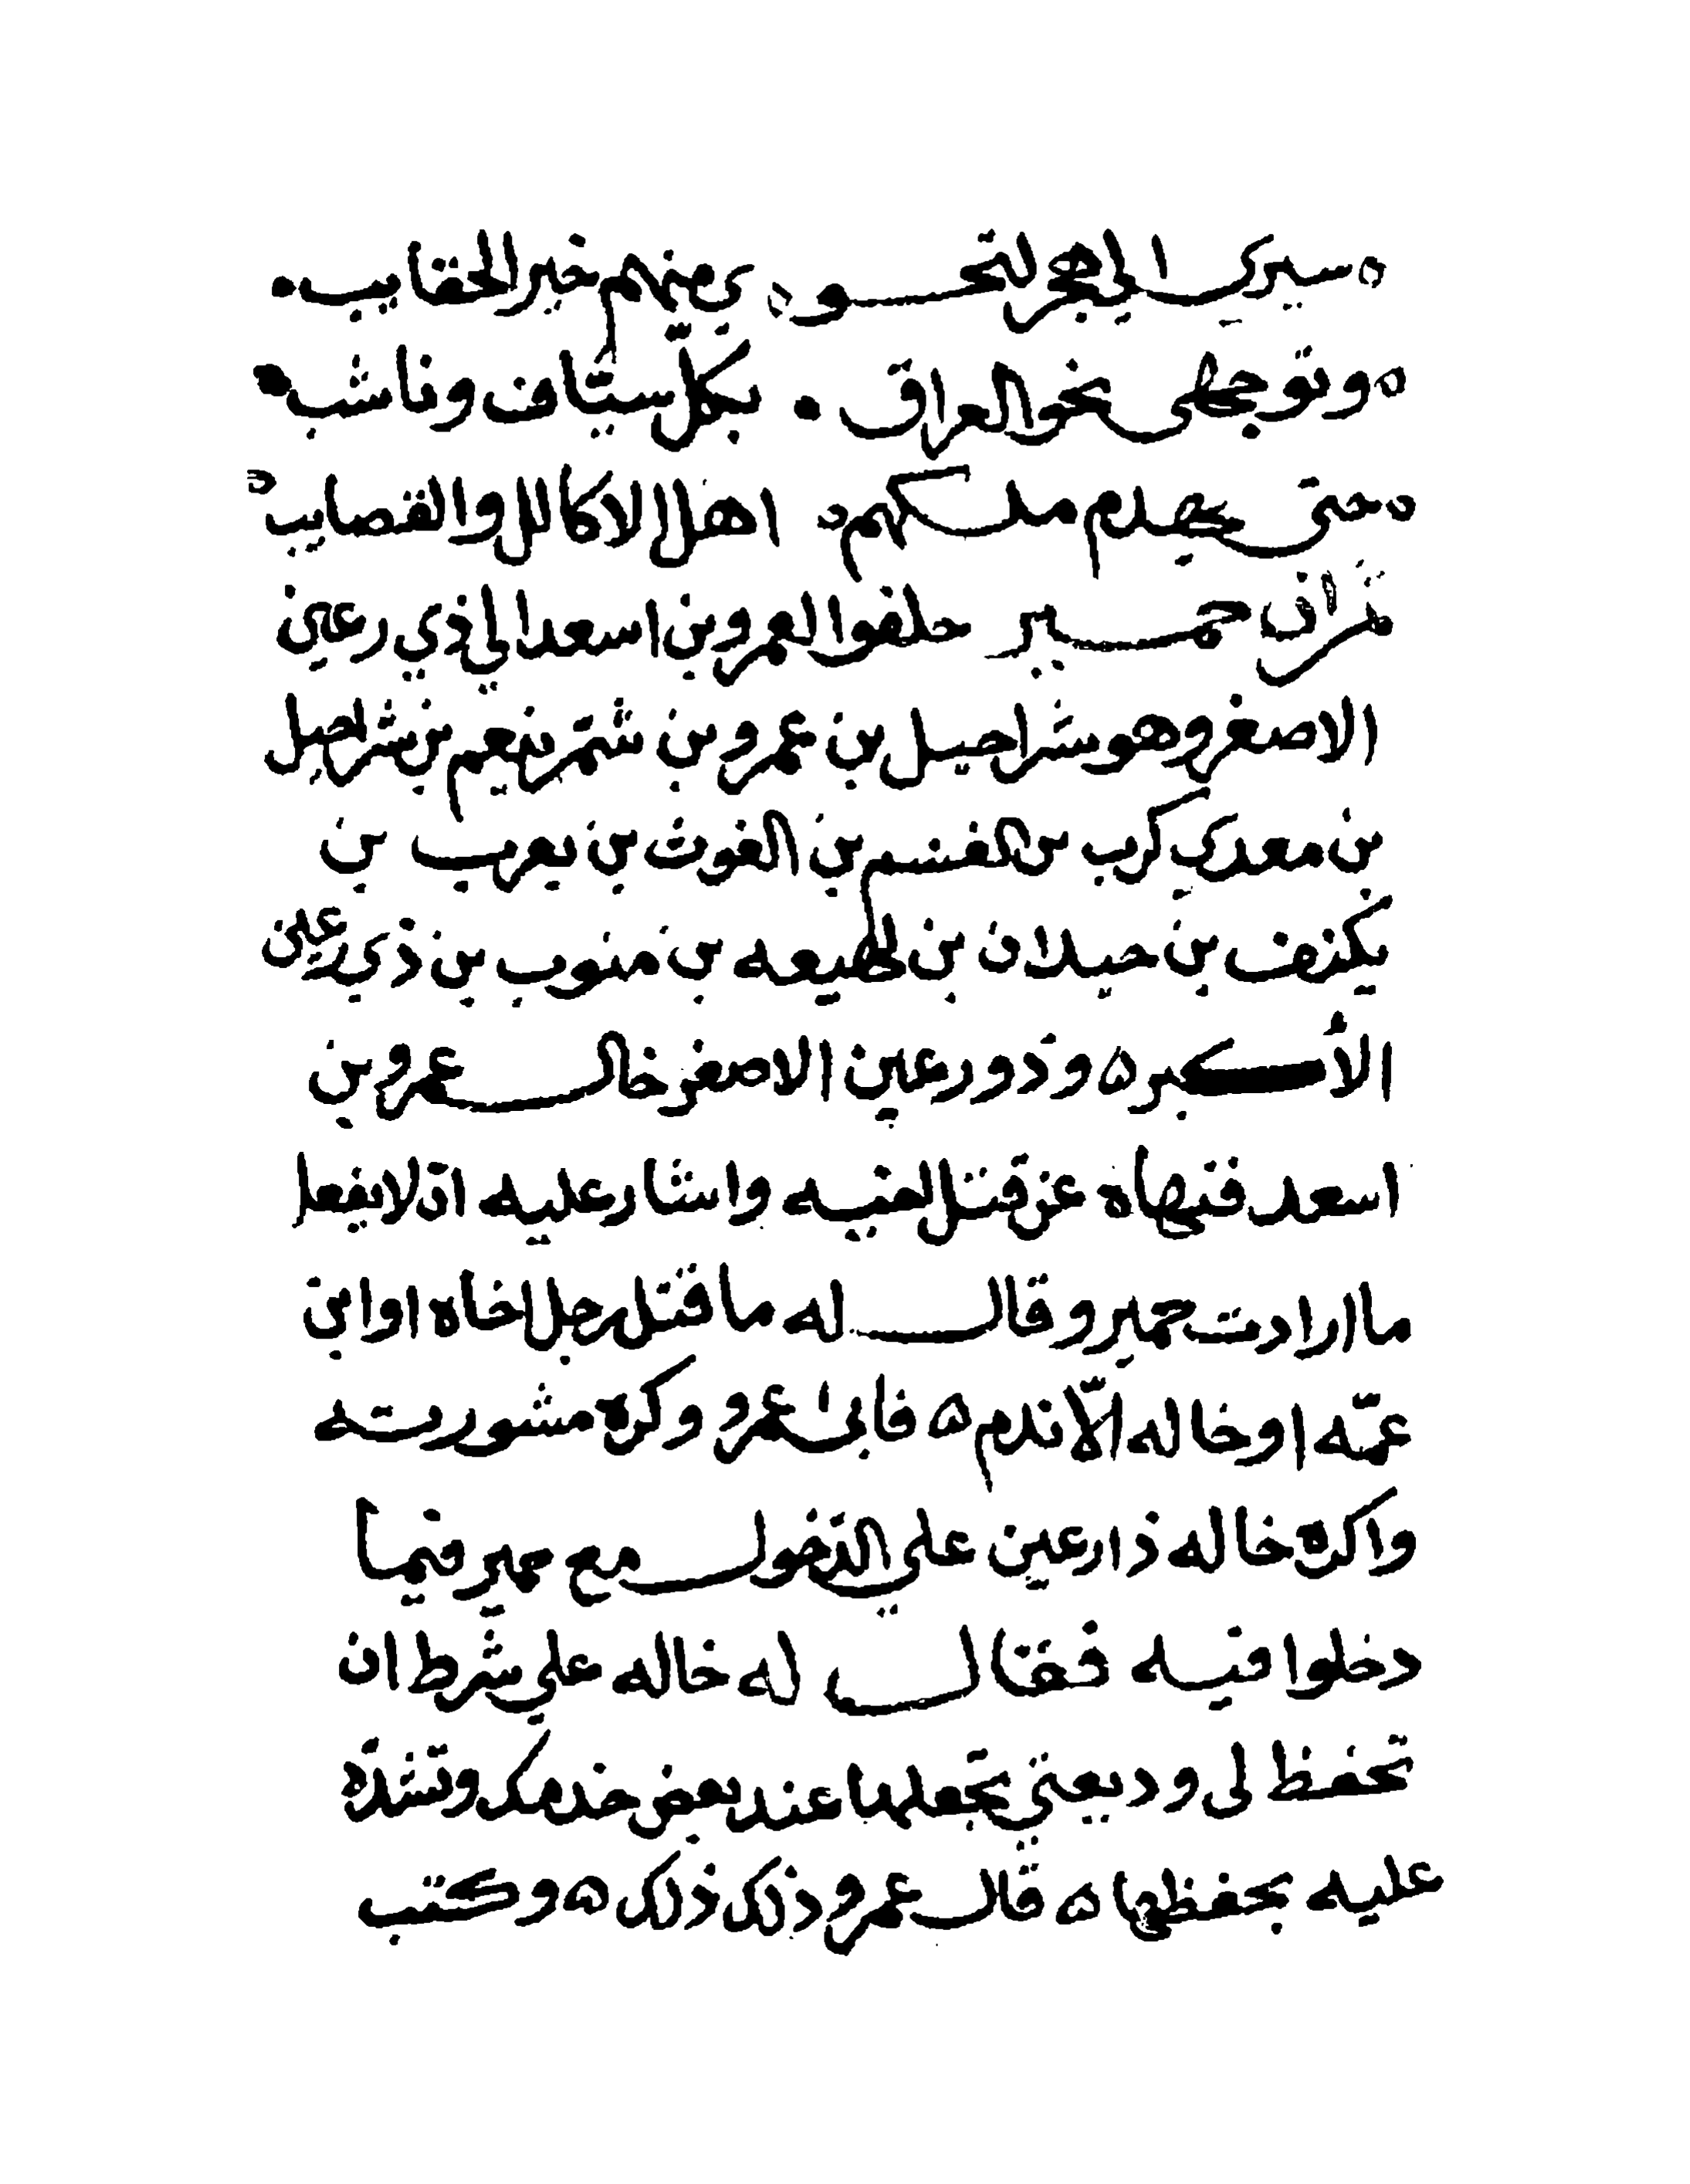 سيري الى هجر لتحو ي منهم خير الحقايب
وتوجهي نحو العراق بكل سيّاف وناشب
حتى يصدم ملكهم اهل الاكالل والقصايب
ثم ان حمير حلفوا لعمرو بن اسعد الي ذي رعين
الاصغر وهو شراحيل بن عمرو بن شمر ينعم بن شراحيل
بن معدي كرب بن القسم بن الغوث بن يعرب بن
يكنف بن حيدان بن لهيعه بن مثوب بن ذي رعين
الأكبر ه وذو رعين الاصغر خال عمرو بن
اسعد فنهاه عن قتل اخيه واشار عليه ان لا يفعل
ما ارادت حمير وقال له ما قتل رجل اخاه او ابن
عمّه او خاله الّا ندم ه فابى عمرو وكره مشورته
واكره خاله ذا رعين علي الدّخول مع حمير فيما
دخلوا فيه فقال له خاله علي شرط ان
تحفظ لي وديعتي تجعلها عند بعض خدمك وتشدّه
عليه بحفظها ه قال عمرو وذلك ذلك ه وكتب